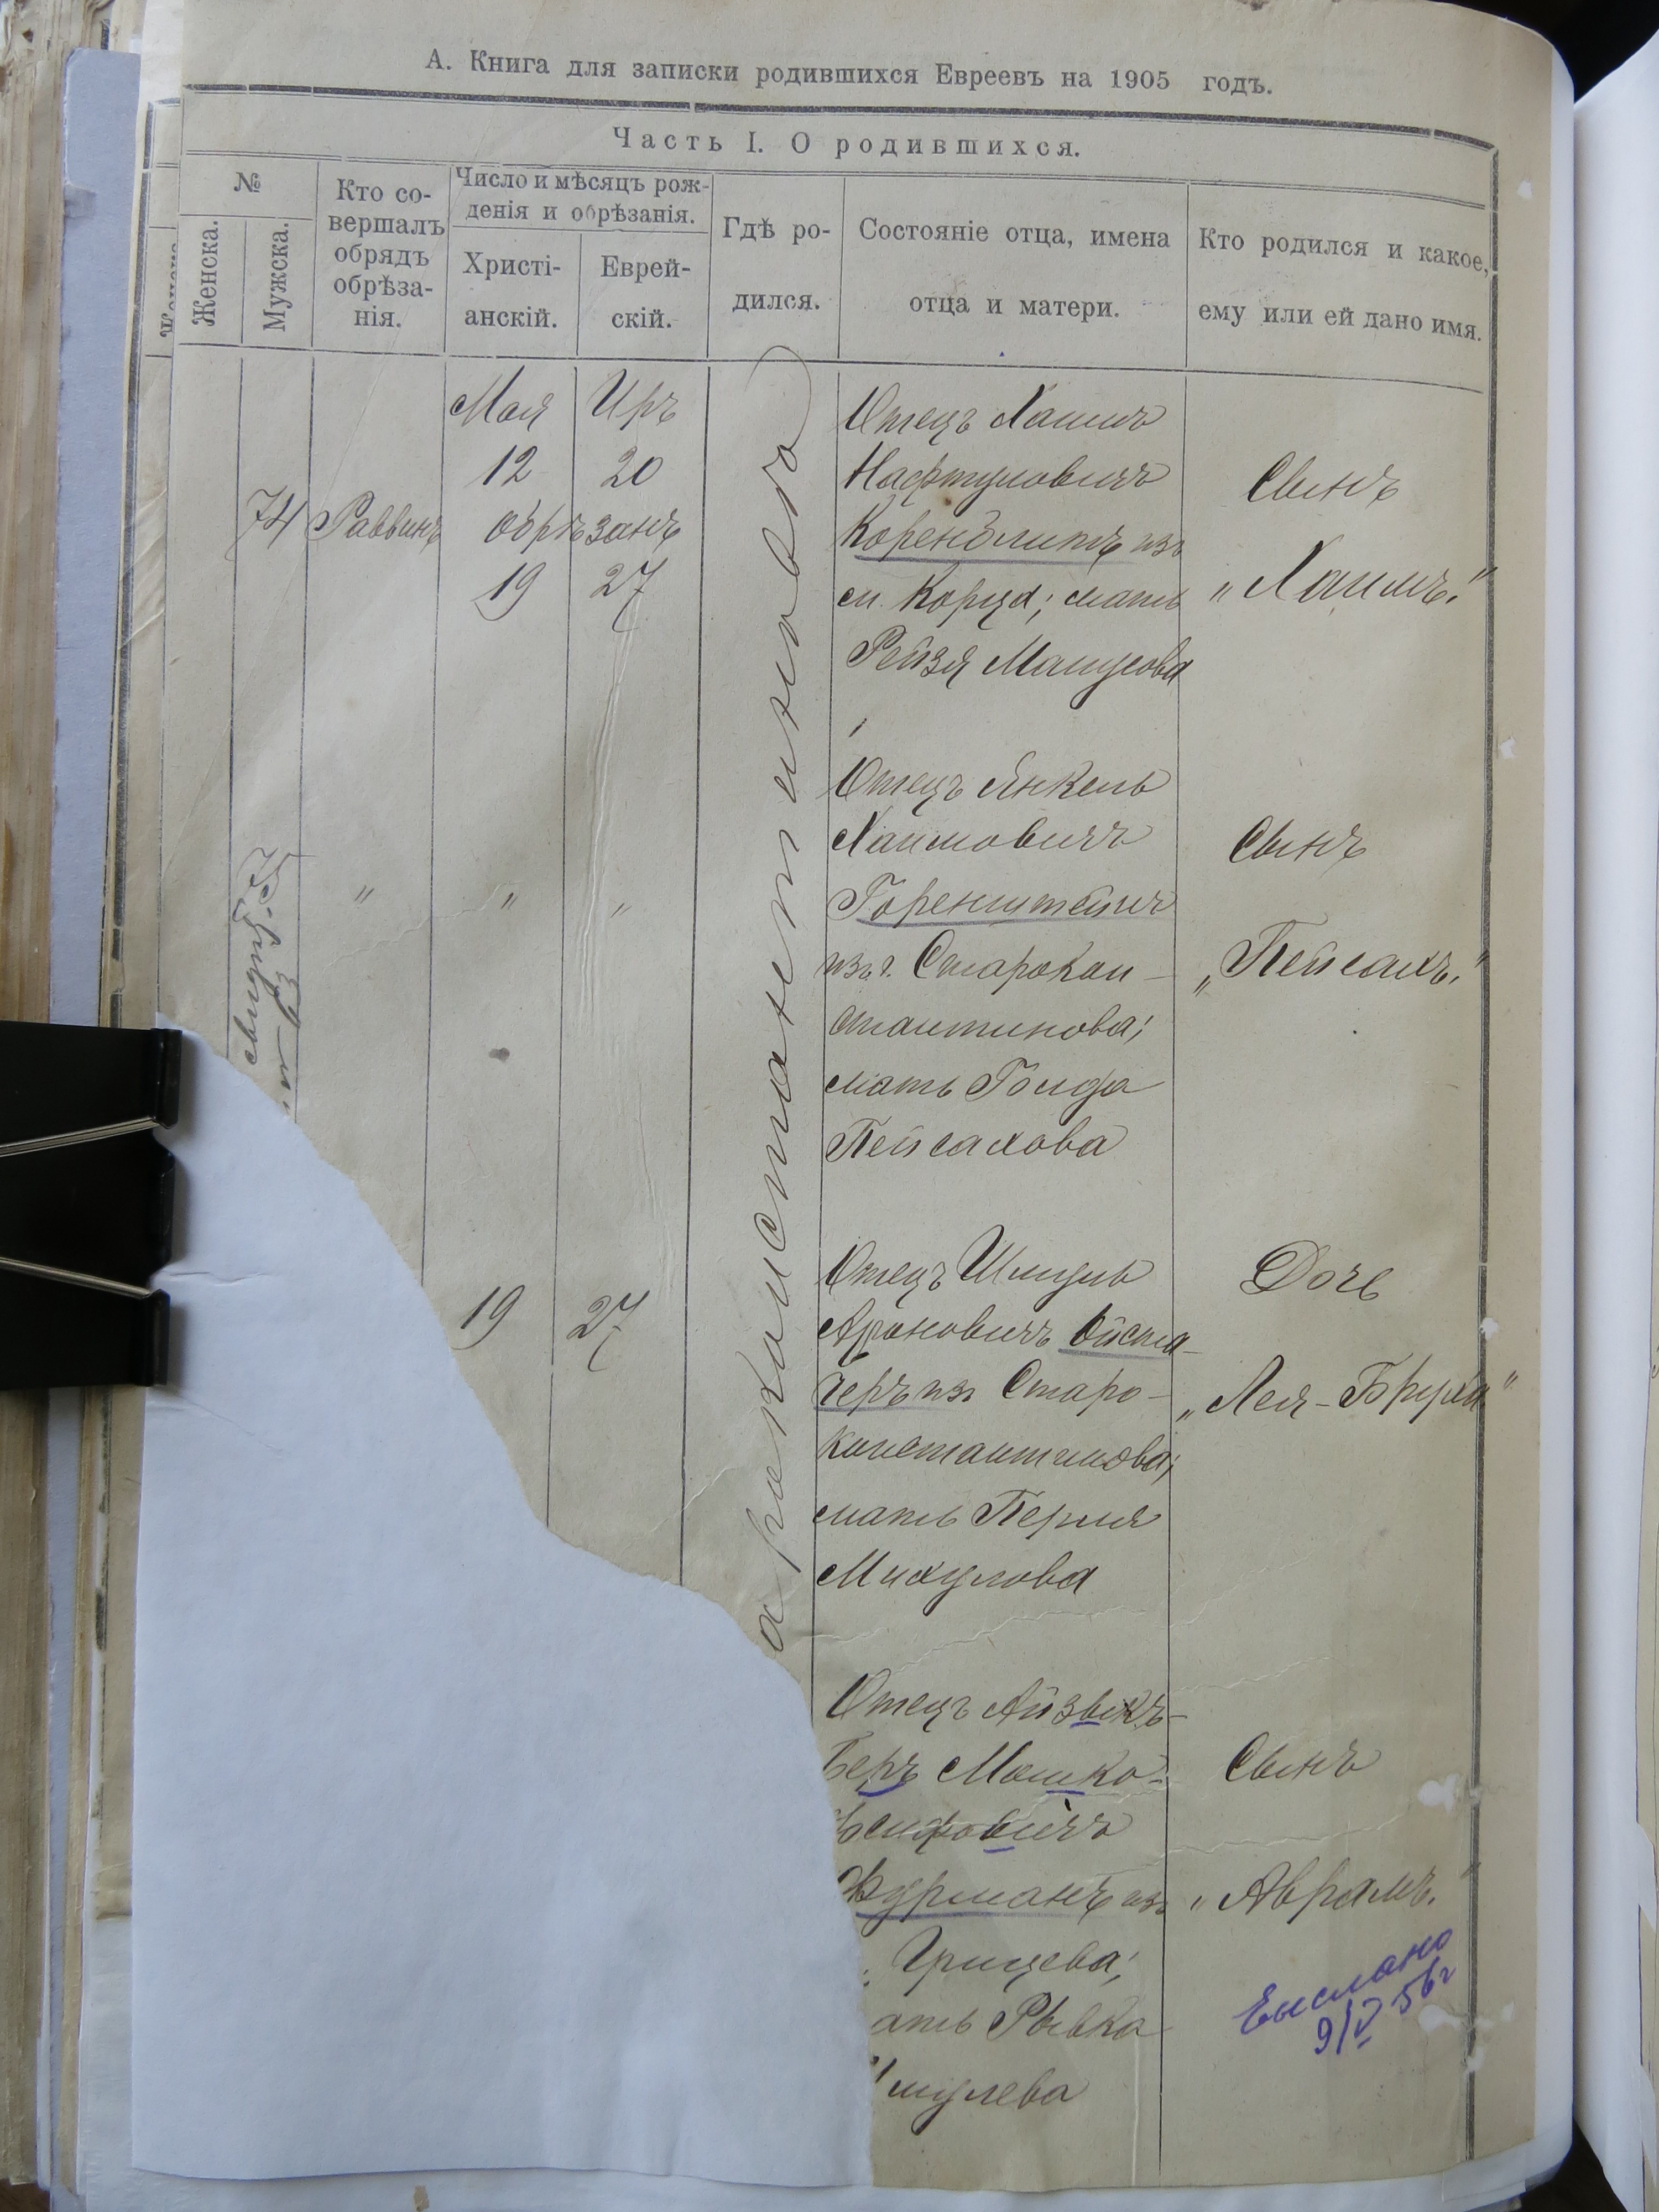 А. Книга для записки родившихся Евреевъ на 1905 годъ.
Часть I. О родившихся.
№
Женска.
Мужска.
Кто со-
вершалъ
обрядъ
обрѣза-
нія.
Число и мѣсяцъ рож-
денія и обрѣзанія.
Христі-
анскій.
Еврей-
скій.
Гдѣ ро-
дился.
Состояніе отца, имена
отца и матери.
Кто родился и какое,
ему или ей дано имя.
74
Раввинъ
Мая Иръ
12 20
обрѣзанъ
19 27
Отецъ Хаимъ
Нафтуловичъ
Коренблитъ изъ
м. Корца; мать
Рейзя
Сынъ
„Хаимъ."
75
" " "
Отецъ Янкель
Хаимовичъ
Горенштейнъ
изъ г. Старокон-
стантинова;
мать Голда
Пейсахова
Сынъ
„Пейсахъ."
19 27
Отецъ Шмуль
Ароновичъ Ойста-
черъ из Старо-
константинова;
мать Перля
Михулова
Дочь
„Лея-Бруха"
Отецъ Айзыкъ-
Беръ Мошко-
Фурманъ изъ
Грицева;
ать Рывка
мулева
Сынъ
„Аврамъ."
Выслано
9/V 56г
ароконстантиново